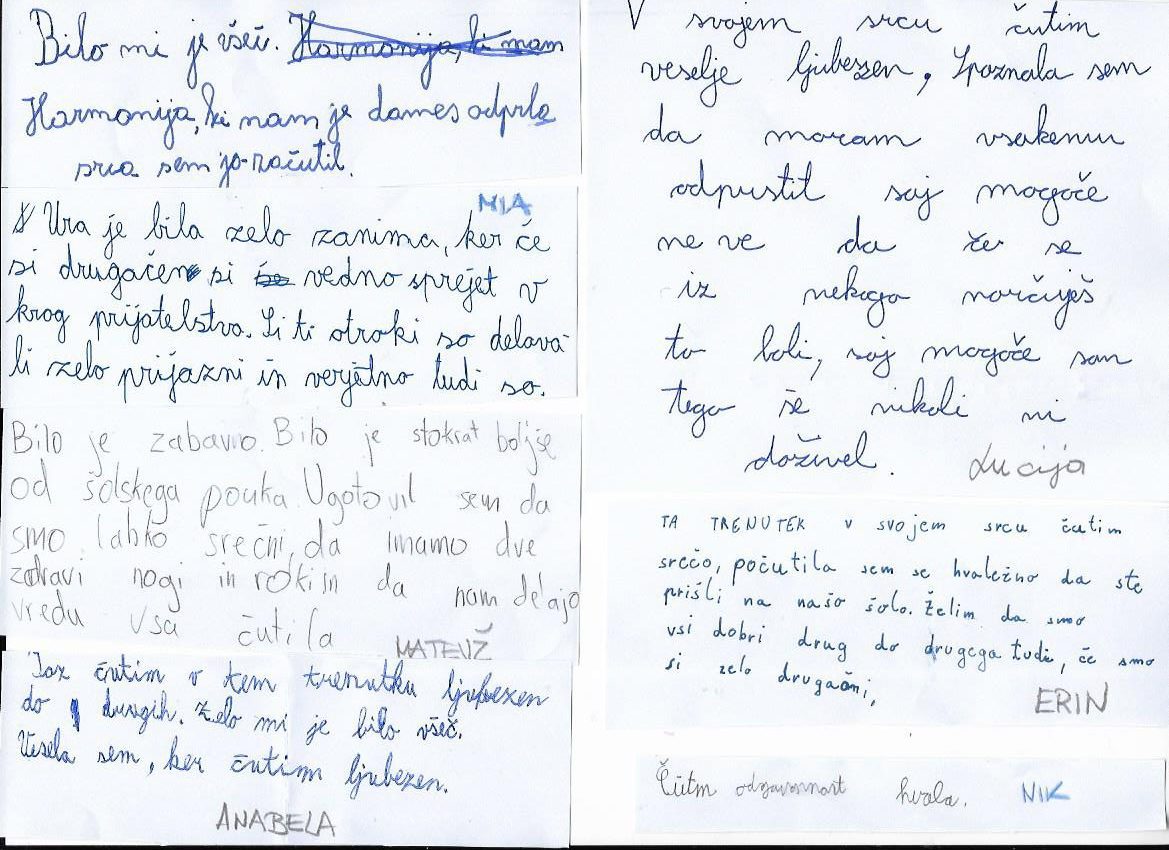 Bilo mi je všeč. Harmonija, ki nam
Harmonija, ki nam je dames odprla
srca sem jo začutil.
MIA
Ura je bila zelo zanima, ker če
si drugačen si še vedno sprejet v
krog prijatelstva. Si ti otroki so delova
li zelo prijazni in verjetno tudi so.
Bilo je zabavno. Bilo je stokrat boljše
od šolskega pouka. Ugotovil sem da
smo lahko srečni, da imamo dve
zdravi nogi in roki in da nam delajo
vredu vsa čutila
MATEVŽ
Jaz čutim v tem trenutku ljubezen
do drugih. Zelo mi je bilo všeč.
Vesela sem, ker čutim ljubezen.
ANABELA
V svojem srcu čutim
veselje ljubezen, Spoznala sem
da moram vsakemu
odpustit saj mogoče
ne ve da če se
iz nekoga norčuješ
to boli, saj mogoče sam
tega še nikoli ni
doživel. Lucija
TA TRENUTEK v svojem srcu čutim
srečo, počutila sem se hvaležno da ste
prišli na našo šolo. Želim da smo
vsi dobri drug do drugega tudi, če smo
si zelo drugačni,
ERIN
Čutm hvala. NIK